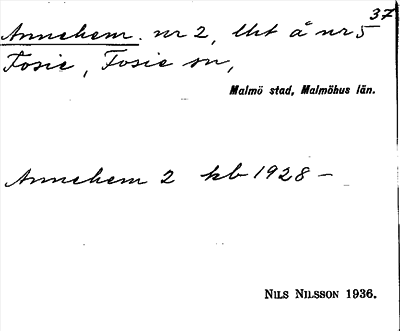 37
Annehem. nr 2, lht å nr 5
Fosie, Fosie sn,
Malmö stad, Malmöhus län.
Annehem 2 kb 1928 –
NILS NILSSON 1936.